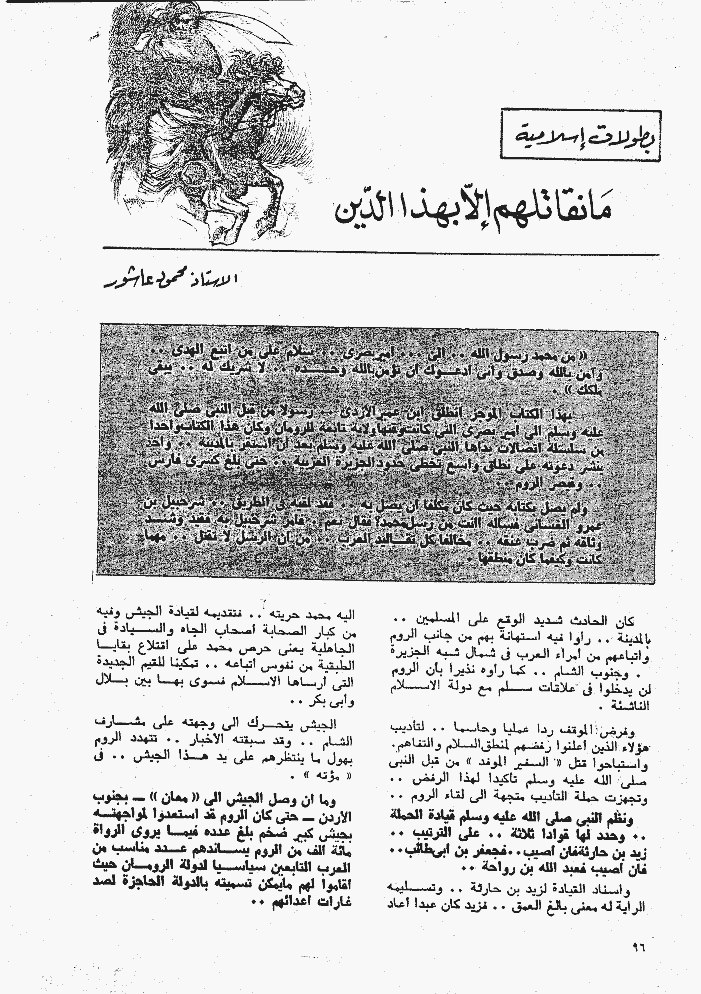 بطولات إسلامية
مَا نقاتلهم إلاّ بهذا الدّين
الاستاذ محمود عاشور
« من محمد رسول الله .. الى ... أمير بصرى .. سلام على من اتبع الهدى ..
وآمن بالله وصدق وانى ادعوك أن تؤمن بالله وحده .. لا شريك له .. يبقى
ملكك » .
بهذا الكتاب الموجز انطلق ابن عمير الأزدى .. رسولا من قبل النبى صلى الله
عليه وسلم الى أمير بصرى التى كانت وقتها ولاية تابعة للرومان وكان هذا الكتاب واحدا
من سلسلة اتصالات بدأها النبى صلى الله عليه وسلم بعد أن استقر بالمدينة .. وأخذ
ينشر دعوته على نطاق واسع تخطى حدود الجزيرة العربية .. حتى بلغ كسرى فارس
.. وقيصر الروم ..
ولم يصل بكتابه حيث كان مكلفا أن يصل به .. فقد لقيه فى الطريق .. شرحبيل بن
عمرو الغسانى فسأله أأنت من رسل محمد؟ فقال نعم .. فأمر شرحبيل به فقيد وشد
وثاقه ثم ضرب عنقه .. مخالفا كل تقاليد العرب .. من أن الرسل لا تقتل .. مهما
كانت وكيفما كان منطقها .
كان الحادث شديد الوقع على المسلمين ..
بالمدينة .. رأوا فيه استهانة بهم من جانب الروم
واتباعهم من أمراء العرب فى شمال شبه الجزيرة
. وجنوب الشام .. كما رأوه نذيرا بأن الروم
لن يدخلوا فى علاقات سلم مع دولة الاسلام
الناشئة .
وفرض الموقف ردا عمليا وحاسما .. لتأديب
هؤلاء الذين أعلنوا رفضهم لمنطق السلام والتفاهم.
واستباحوا قتل « السفير الموفد » من قبل النبى
صلى الله عليه وسلم تأكيدا لهذا الرفض ..
وتجهزت حملة التأديب متجهة الى لقاء الروم ..
ونظم النبى صلى الله عليه وسلم قيادة الحملة
.. وحدد لها قوادا ثلاثة .. على الترتيب ..
زيد بن حارثة فان أصيب .. فجعفر بن ابى طالب ..
فان أصيب فعبد الله بن رواحة ..
واسناد القيادة لزيد بن حارثة .. وتسليمه
الراية له معنى بالغ العمق .. فزيد كان عبدا أعاد
اليه محمد حريته .. فتقديمه لقيادة الجيش وفيه
من كبار الصحابة أصحاب الجاه والسيادة فى
الجاهلية يعنى حرص محمد على اقتلاع بقايا
الطبقية من نفوس أتباعه .. تمكينا للقيم الجديدة
التى أرساها الاسلام فسوى بها بين بلال
وأبى بكر ..
الجيش يتحرك الى وجهته على مشارف
الشام .. وقد سبقته الأخبار .. تتهدد الروم
بهول ما ينتظرهم على يد هذا الجيش .. فى
« مؤته » .
وما ان وصل الجيش الى « معان » - بجنوب
الأردن - حتى كان الروم قد استعدوا لمواجهته
بجيش كبير ضخم بلغ عدده فيما يروى الرواة
مائة الف من الروم يساندهم عدد مناسب من
العرب التابعين سياسيا لدولة الرومان حيث
أقاموا لهم مايمكن تسميته بالدولة الحاجزة لصد
غارات أعدائهم ..
٩٦